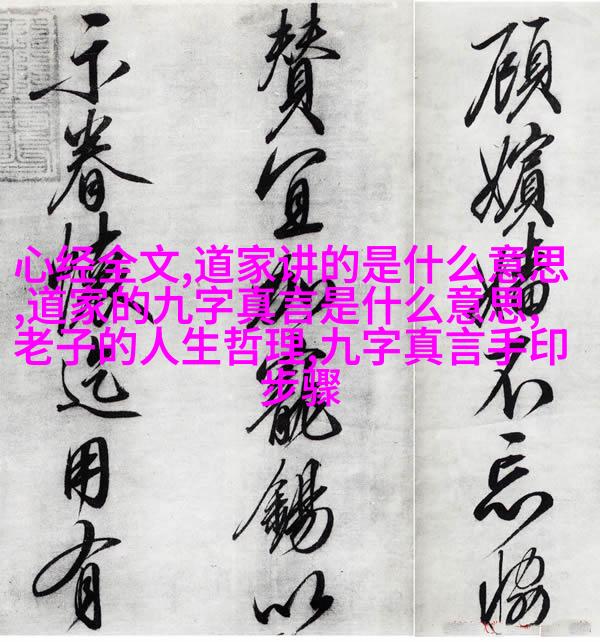 心经全文,道家讲的是什么意思
,道家的九字真言是什么意思,
老子的人生哲理,九字真言手印
步骤
顧嬪嬙不忘恊
賛宜加寵錫以
示眷懷迄用有